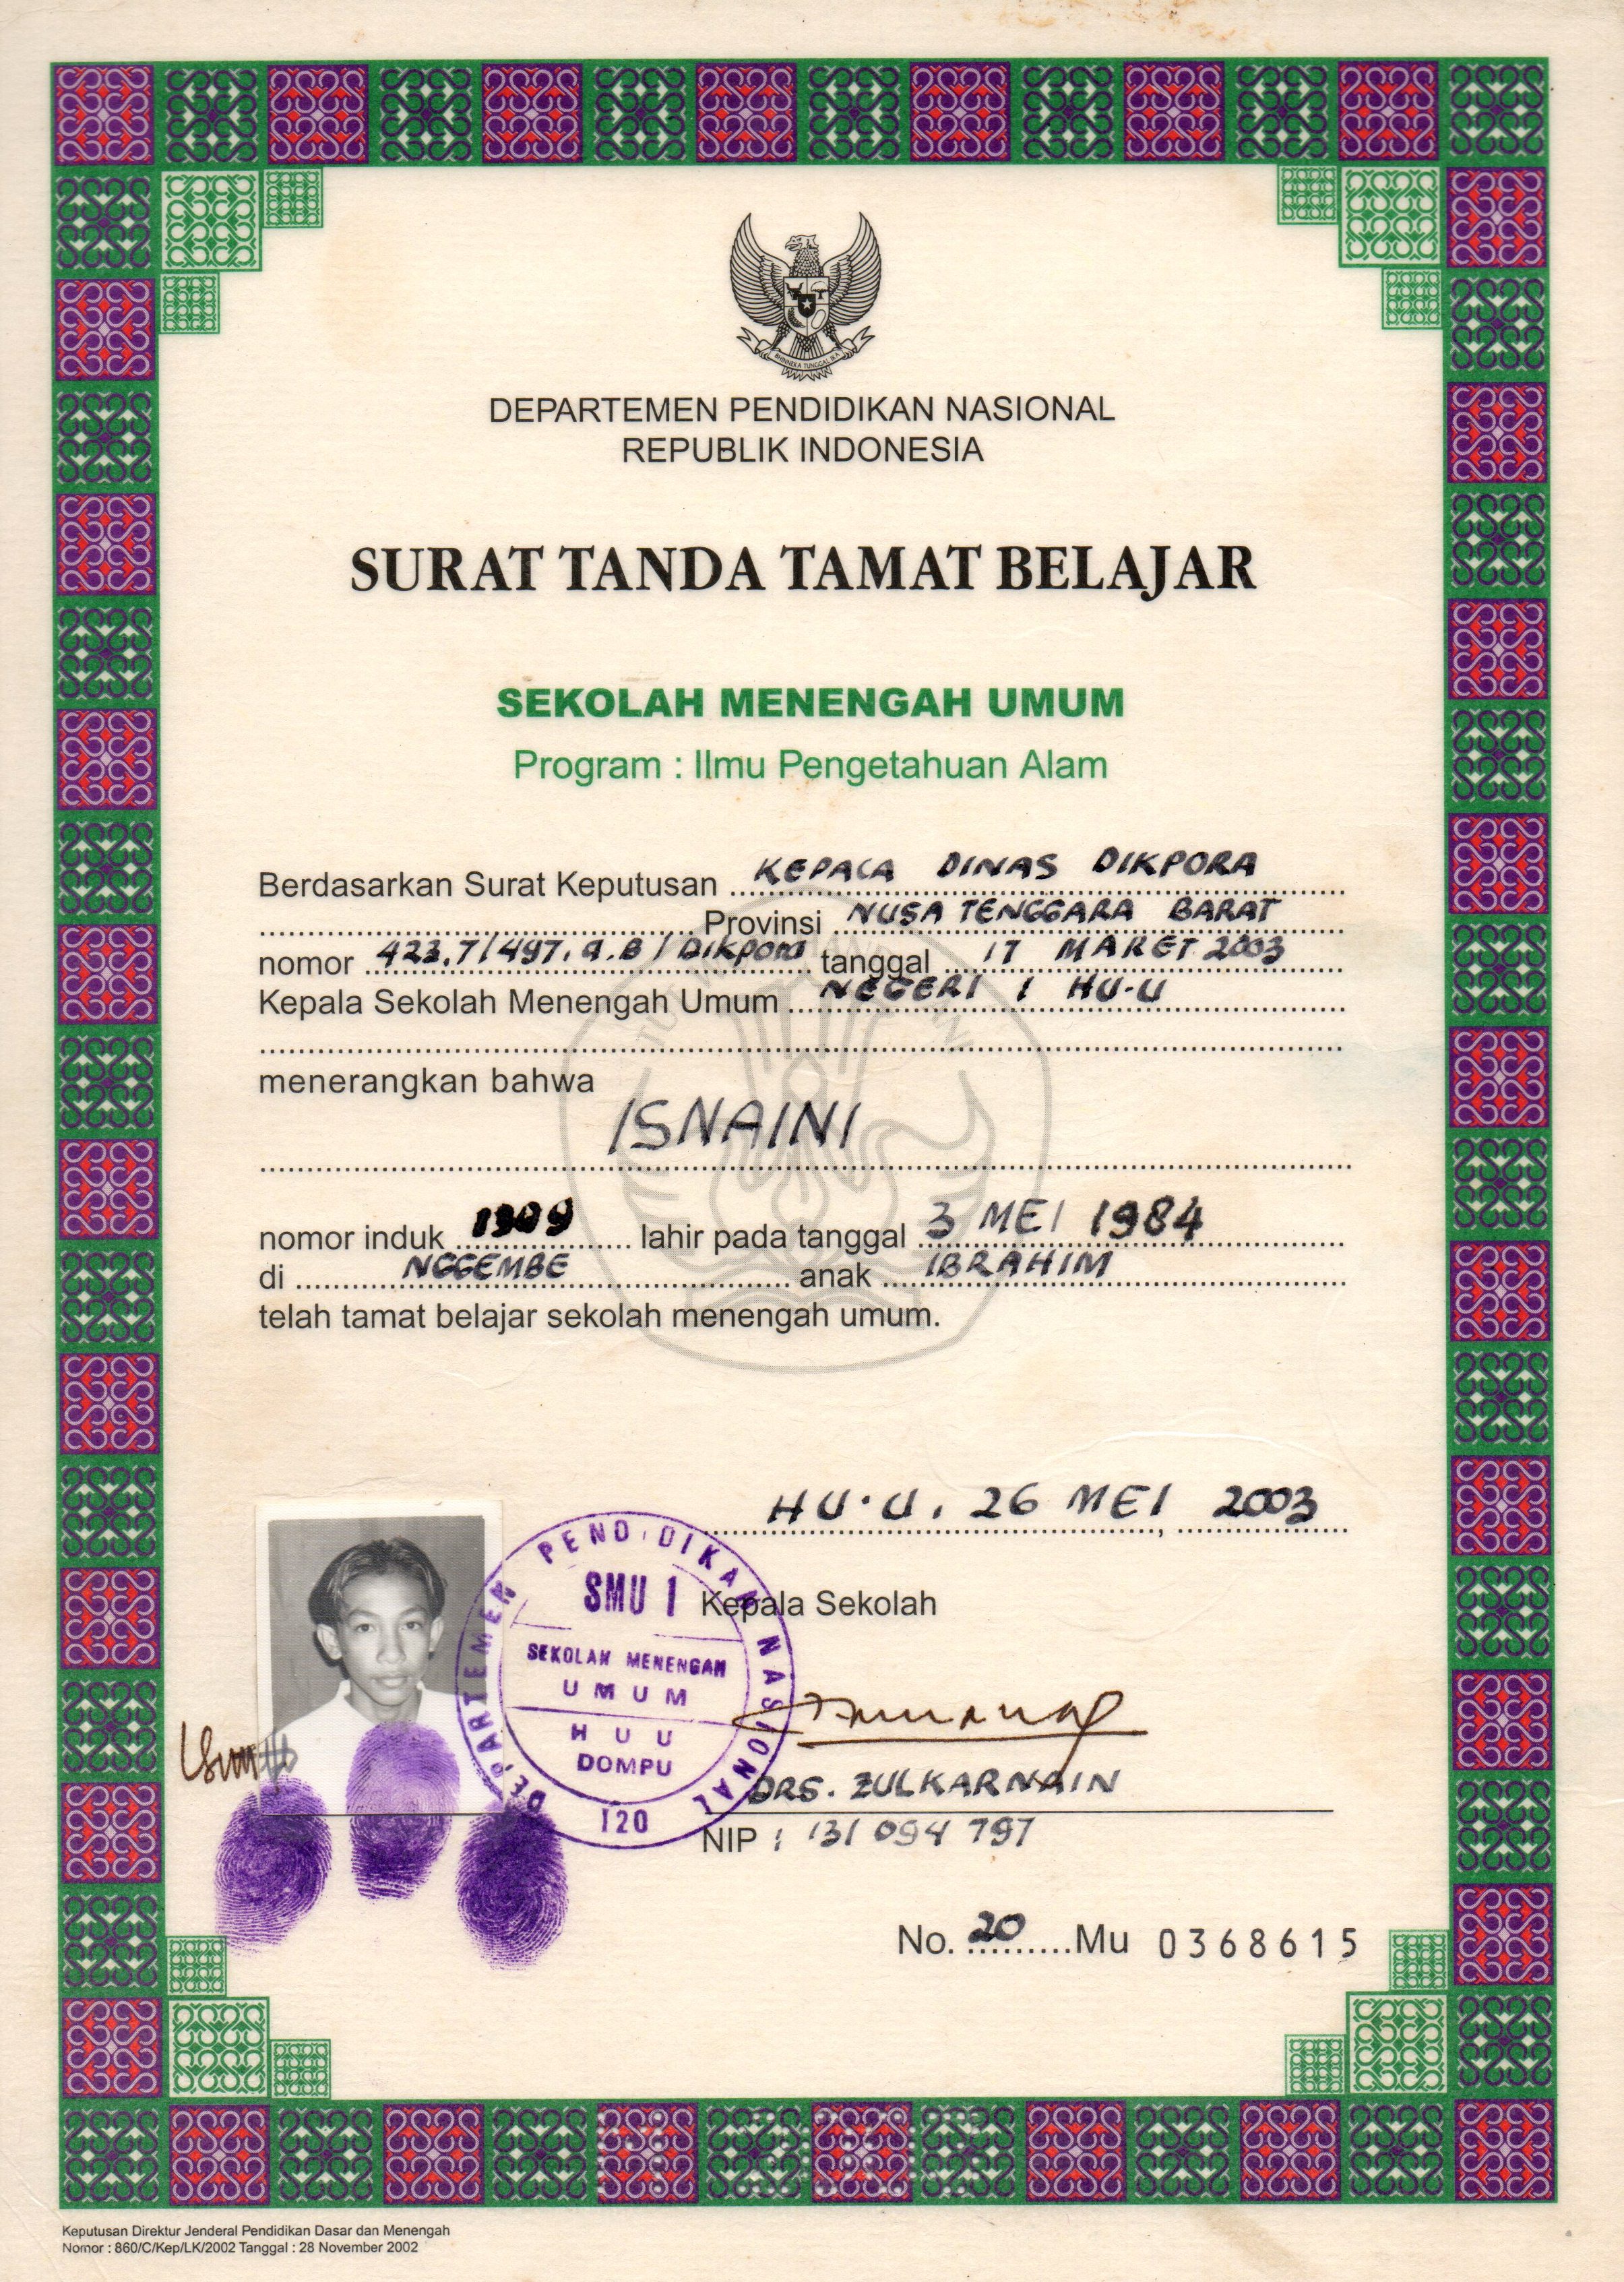 BHINNEKA TUNGGAL IKA
DEPARTEMEN PENDIDIKAN NASIONAL
REPUBLIK INDONESIA
SURAT TANDA TAMAT BELAJAR
SEKOLAH MENENGAH UMUM
Program : Ilmu Pengetahuan Alam
Berdasarkan Surat Keputusan KEPALA DINAS DIKPORA
Provinsi NUSA TENGGARA BARAT
nomor 423.7/497.a.B/Dikpora tanggal 17 MARET 2003
Kepala Sekolah Menengah Umum NEGERI 1 HU-U
menerangkan bahwa
ISNAINI
nomor induk 1309 lahir pada tanggal 3 MEI 1984
di NGGEMBE anak IBRAHIM
telah tamat belajar sekolah menengah umum.
HU-U, 26 MEI 2003
DEPARTEMEN PENDIDIKAN NASIONAL
SMU 1
SEKOLAH MENENGAH
UMUM
HUU
DOMPU
120
Kepala Sekolah
DRS. ZULKARNAIN
NIP : 131 094 797
No. 20 Mu 0368615
Keputusan Direktur Jenderal Pendidikan Dasar dan Menengah
Nomor : 860/C/Kep/LK/2002 Tanggal : 28 November 2002